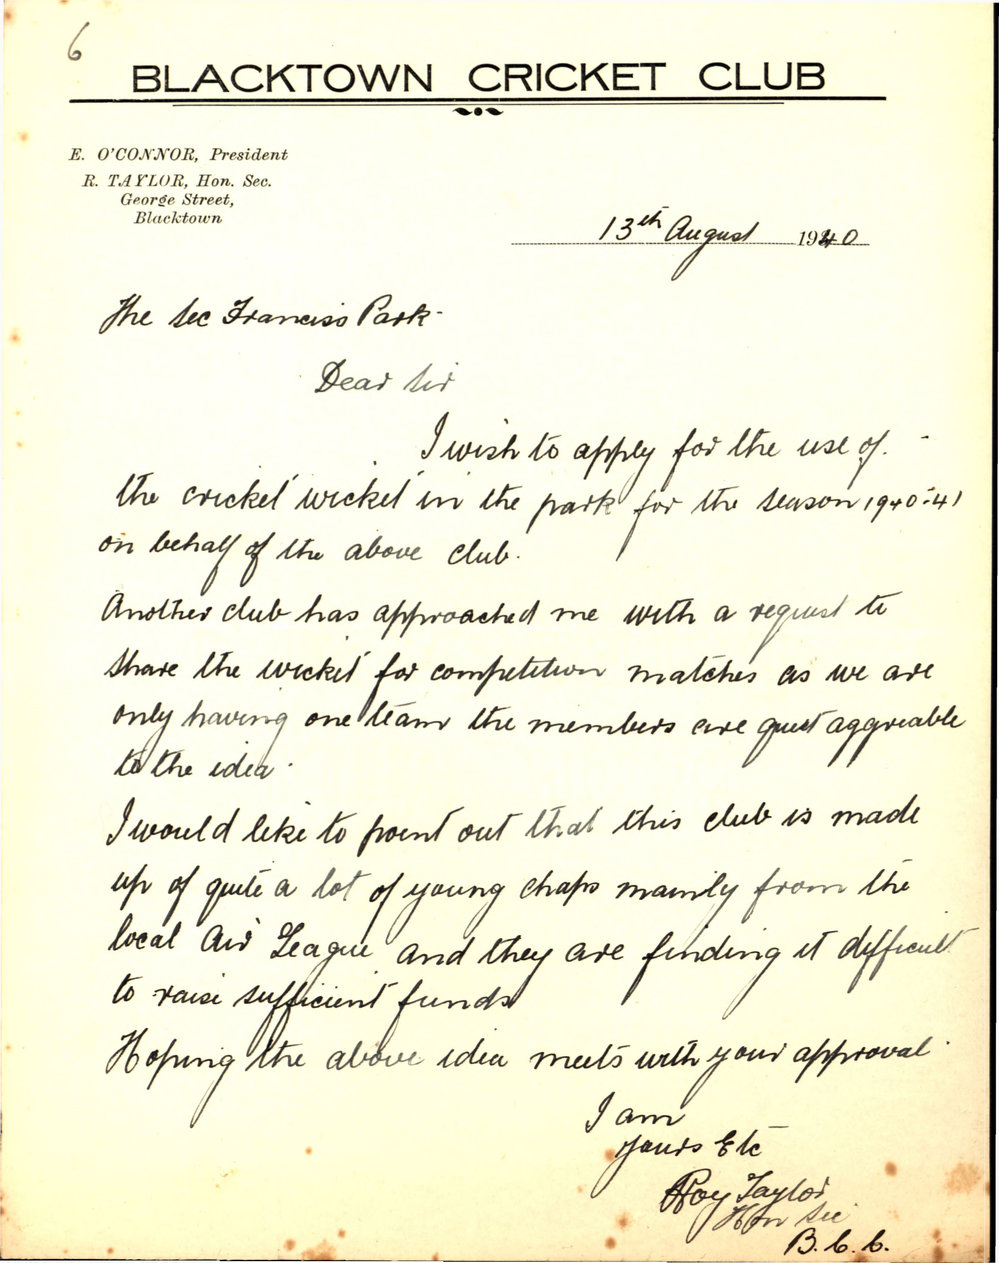 6
BLACKTOWN CRICKET CLUB
E. O'CONNOR, President
R. TAYLOR, Hon. Sec.
George Street,
Blacktown
13th August 1940
The Sec Francis's Park
Dear Sir
I wish to apply for the use of
the cricket wicket in the park for the season 1940-41
on behalf of the above club.
Another club has approached me with a request to
share the wicket for competition matches as we are
only having one team the members are quet aggreable
to the idea.
I would like to point out that this club is made
up of quite a lot of young chaps mainly from the
local Air League and they are finding it difficult
to raise sufficient funds
Hoping the above idea meets with your approval.
I am
Yours Etc
Roy Taylor
Hon Sec
B.C.C.